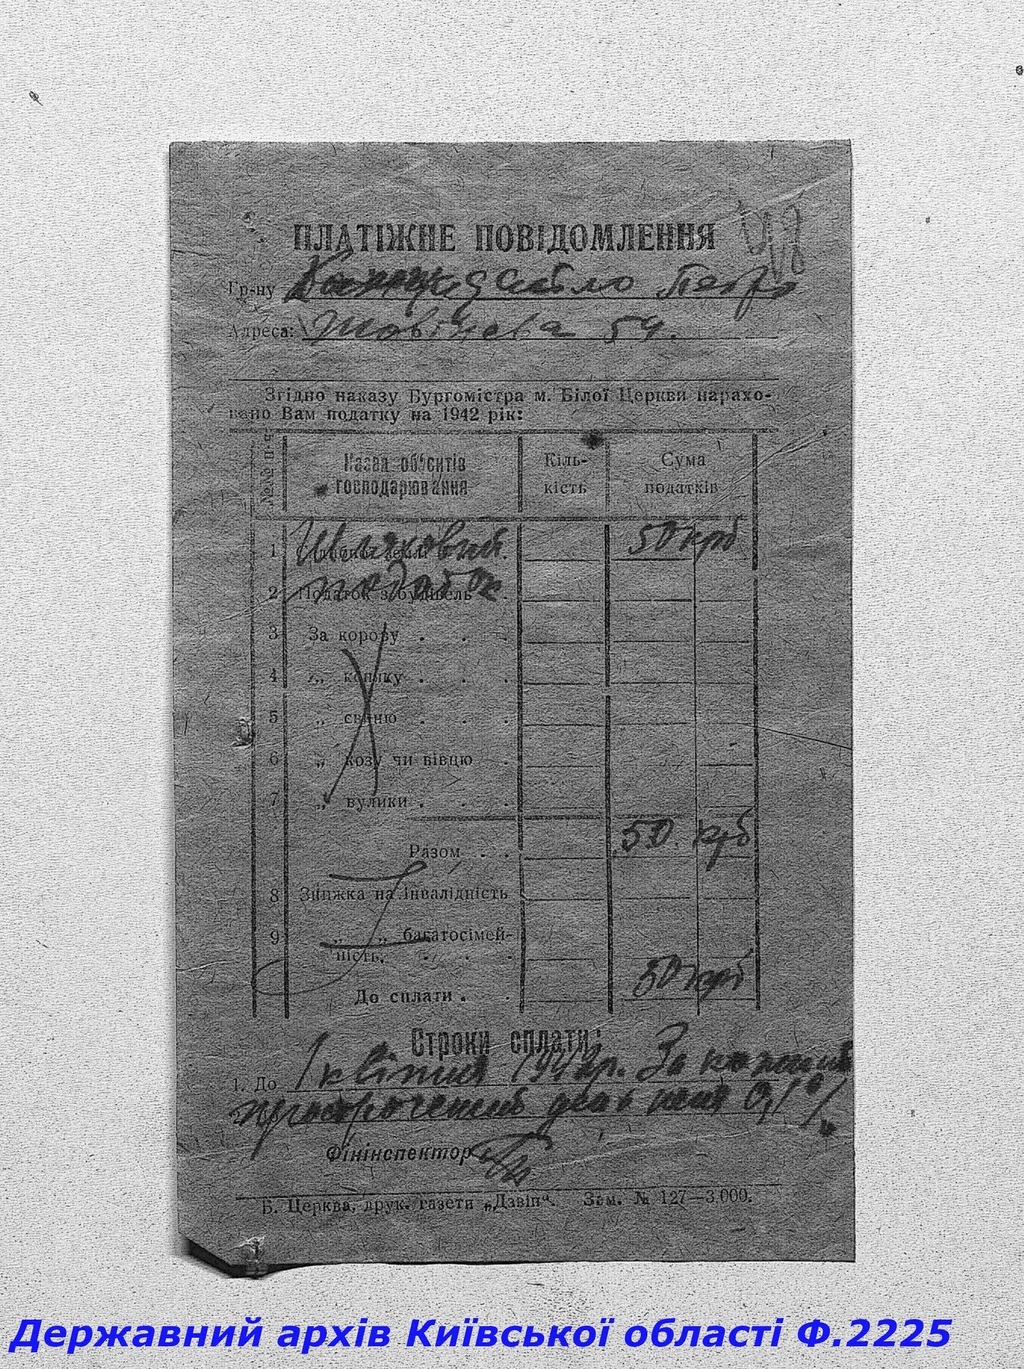 ПЛАТІЖНЕ ПОВІДОМЛЕННЯ
48
Гр-ну Петро
Адреса: 54.
Згідно наказу Бургомістра м. Білої Церкви нарахо-
вано Вам податку на 1942 рік:
№№ п-п Назва об'єктів господарювання Кіль-кість Сума податків
1 Шляховий 50 крб
2 Податок з будівель податок
3 За корову . . .
4 „ коняку . . .
5 „ свиню . . .
6 „ козу чи вівцю .
7 „ вулики . . .
Разом . . 50. крб
8 Знижка на інвалідність
9 „ „ багатосімей-
ність. . . .
До сплати . . 50 крб
Строки сплати:
1. До 1 квітня 1942 р. За кожний
прострочений день пеня 0,1%
Фінінспектор
Б. Церква, друк. газети „Дзвін“. Зам. № 127—3.000.
Державний архів Київської області Ф.2225